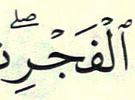 ٱلۡفَجۡرِۖ